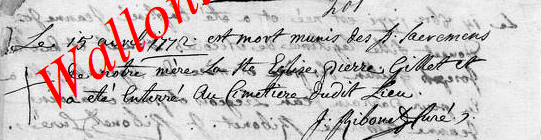 201
Le 15 avril 1772 est mort munis des S. Sacremens
de notre mère La Ste Eglise pierre Gillet et
a été Enterré Au Cimetiere dudit Lieu.
J. Ribonet Curé
Wallon